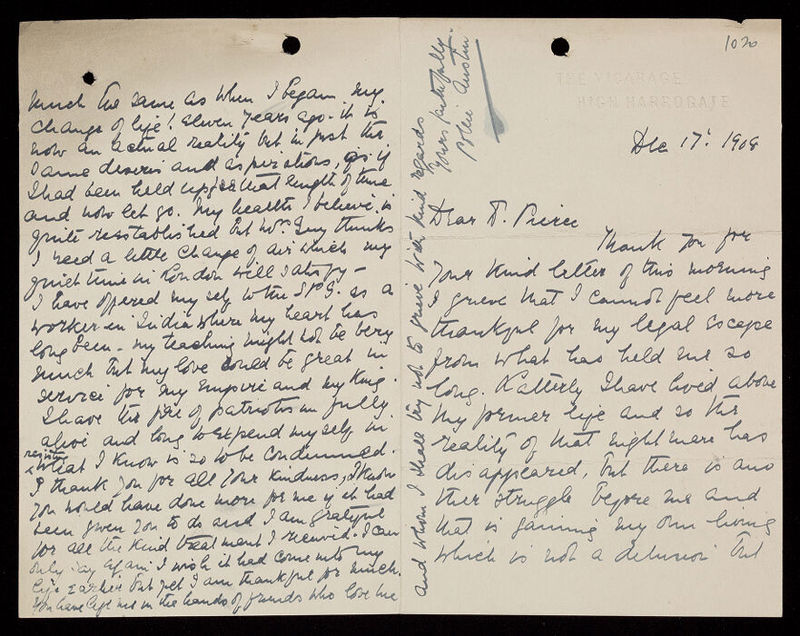 1020
THE VICARAGE
HIGH HARROGATE
Dec 17. 1908
Dear Dr. Pierce
Thank you for
your kind letter of this morning
I grieve that I cannot feel more
thankful for my legal escape
from what has held me so
long. Latterly I have lived above
my former life and so the
reality of that nightmare has
disappeared, but there is ano
ther struggle before me and
that is gaining my own living
which is not a delusion but
much the same as when I began my
change of life! eleven years ago - it is
now an actual reality but in just the
same desires and aspirations, as if
I had been held up for that length of time
and now let go. My health I believe is
quite reestablished but Mrs. Guy thinks
I need a little change of air which my
quiet time in London will satisfy -
I have offered myself to the S.P.G. as a
worker in India where my heart has
long been - my teaching might not be very
much but my love could be great in
service for my Empire and my King.
I have the fire of patriotism fully
alive and long to expend myself in
resisting what I know is so to be condemned.
I thank you for all your kindness, I know
you would have done more for me if it had
been given you to do and I am grateful
for all the kind treatment I received. I can
only say again I wish it had come into my
life earlier but yet I am thankful for much.
You have left me in the hands of friends who love me
and whom I shall try not to grieve with kind regards
Yours faithfully
Austin